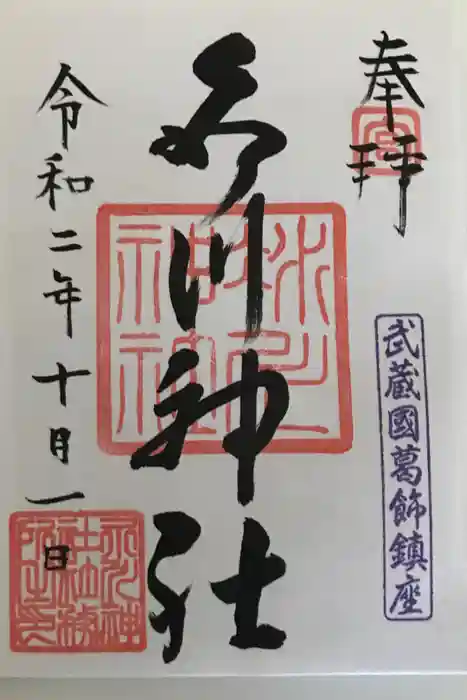 奉拝
武蔵國葛飾鎮座
氷川神社
令和二年十月一日
氷川神
社社務
所之印